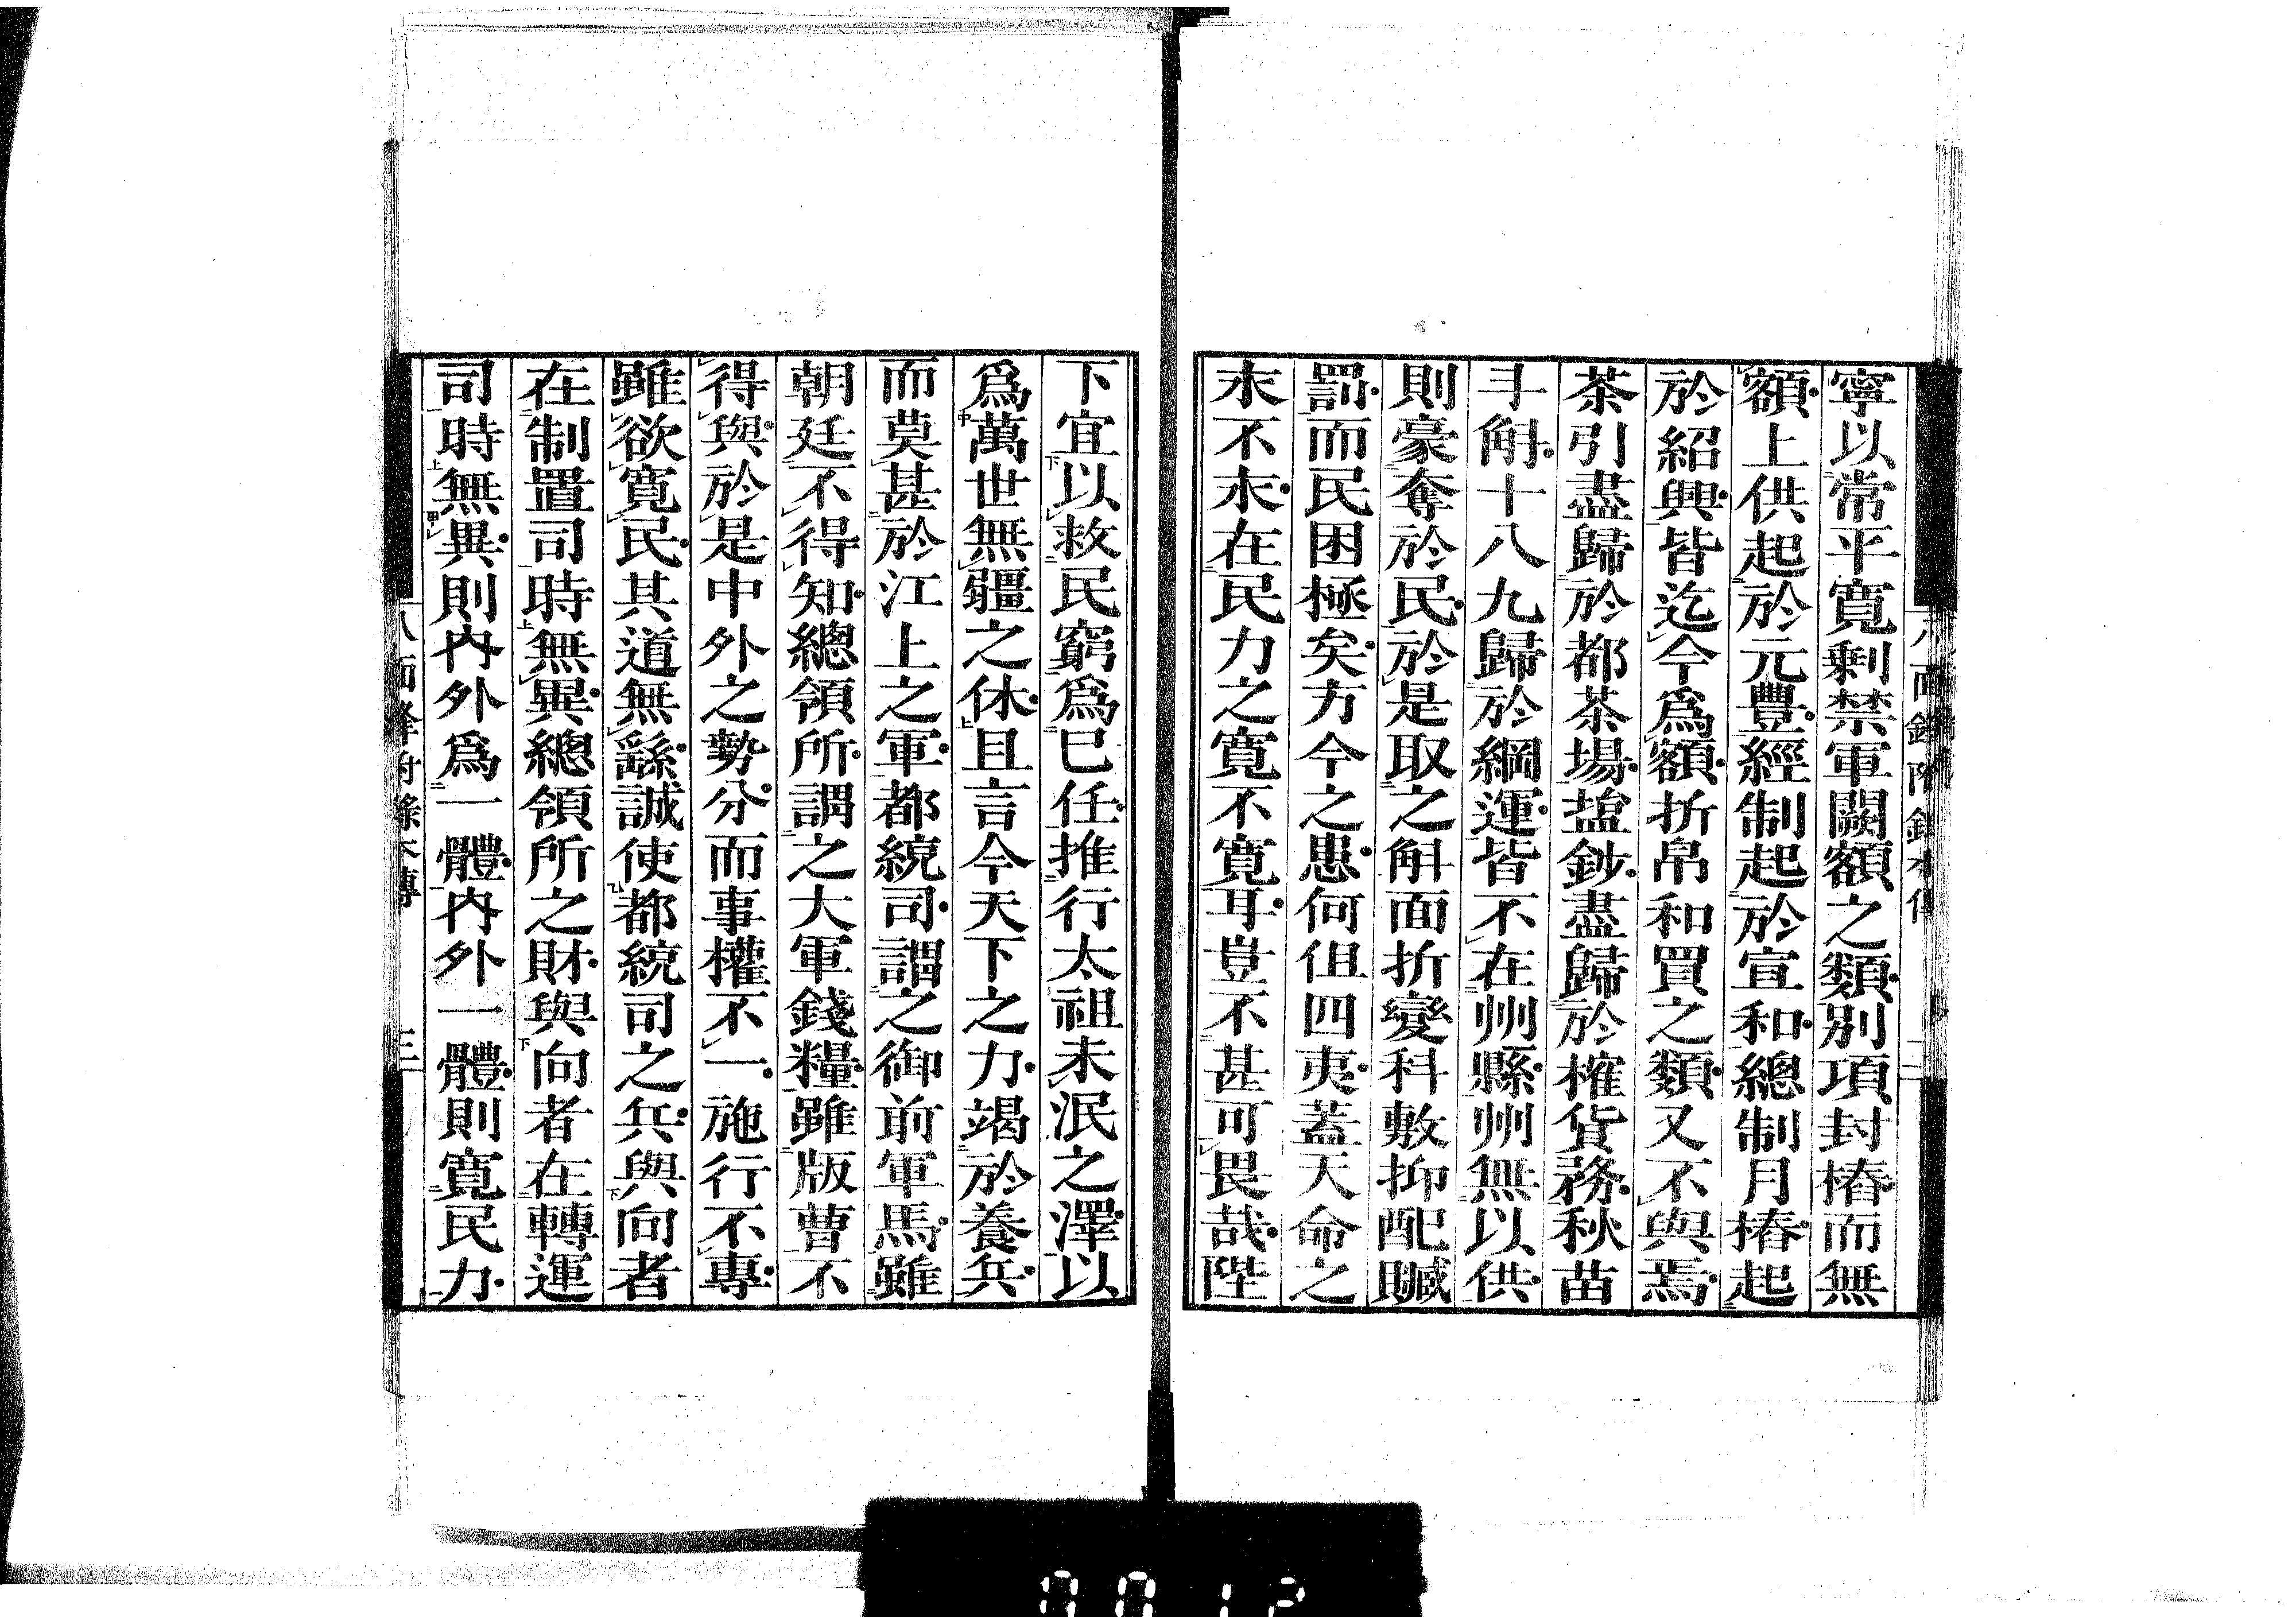 寧以常平寬剩禁軍闕額之類別項封樁而無
額上供起於元豐經制起於宣和總制月樁起
於紹興皆迄今爲額折帛和買之類又不與焉
茶引盡歸於都茶場鹽鈔盡歸於榷貨務秋苗
斗斛十八九歸於綱運皆不在州縣州無以供
則豪奪於民於是取之斛面折變科敷抑配贓
罰而民困極矣方今之患何但四夷蓋天命之
永不永在民力之寬不寬耳豈不甚可畏哉陛
下宜以救民窮爲已任推行太祖未泯之澤以
爲萬世無疆之休且言今天下之力竭於養兵
而莫甚於江上之軍都統司謂之御前軍馬雖
朝廷不得知總領所謂之大軍錢糧雖版曹不
得與於是中外之勢分而事權不一施行不專
雖欲寬民其道無繇誠使都統司之兵與向者
在制置司時無異總領所之財與向者在轉運
司時無異則內外爲一體內外一體則寬民力
三